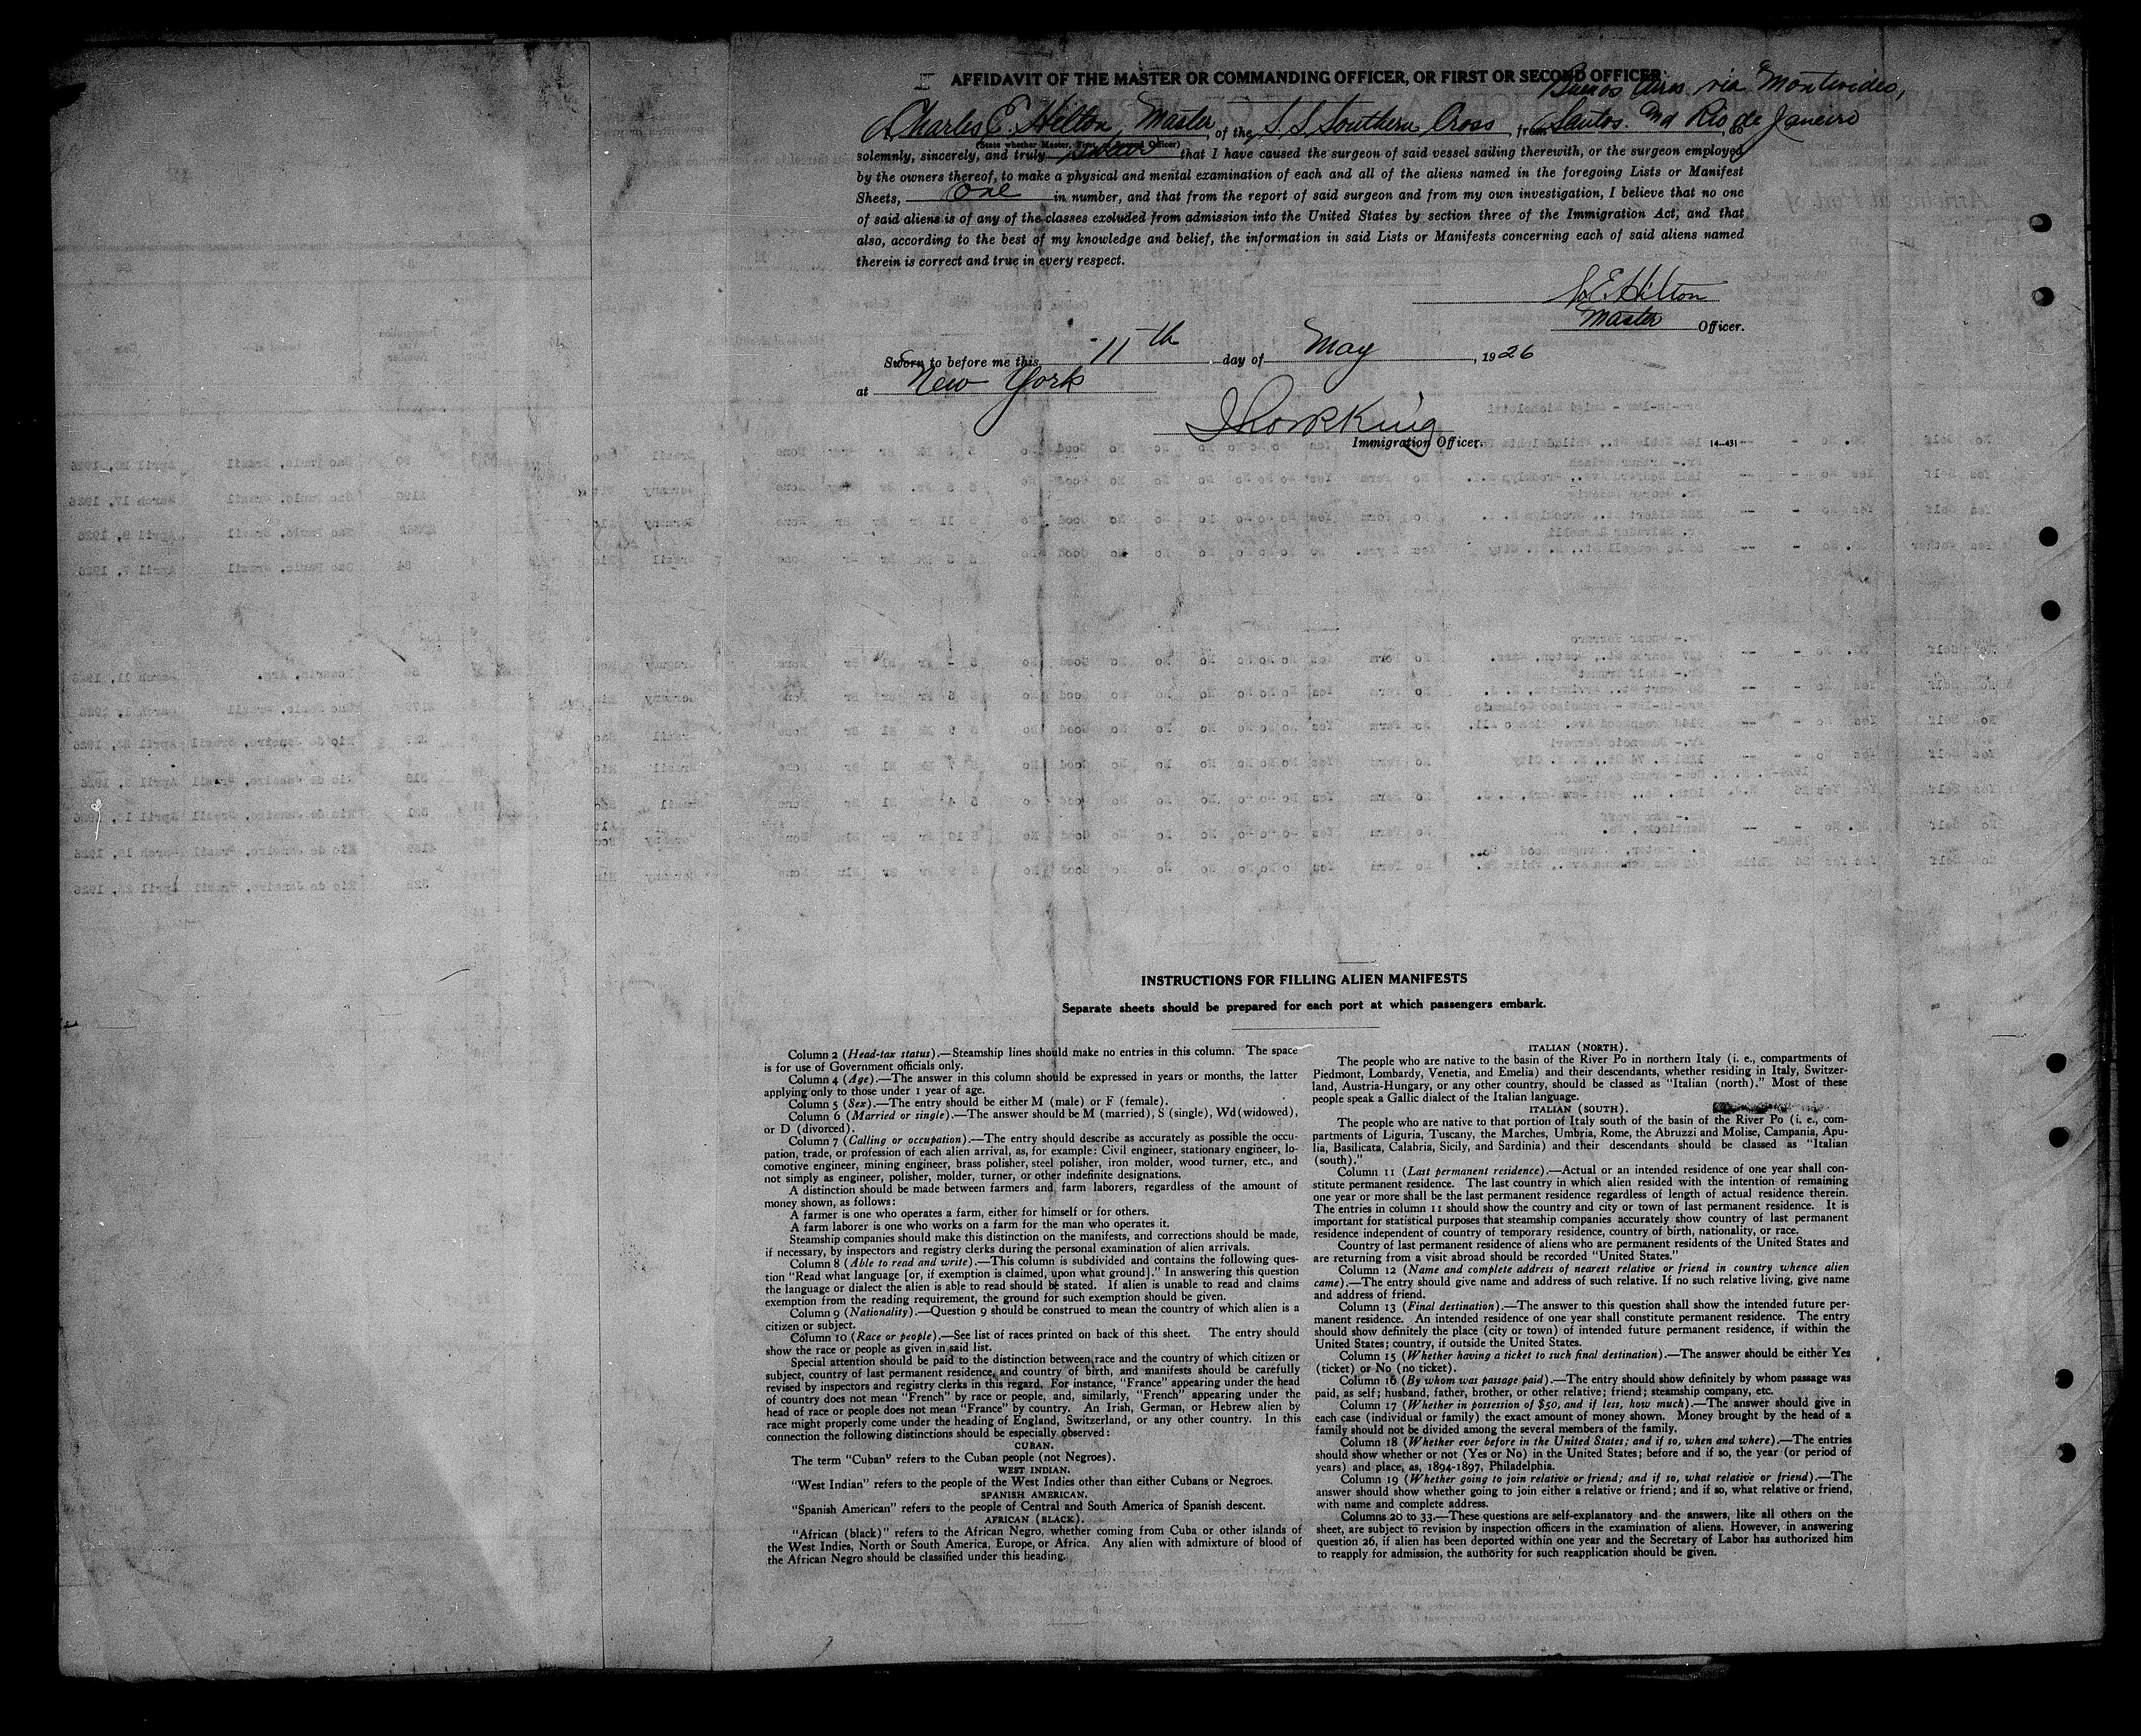 AFFIDAVIT OF THE MASTER OR COMMANDING OFFICER, OR FIRST OR SECOND OFFICER
Buenos Aires via Montevideo,
I Charles E. Hilton, Master of the S S Southern Cross, from Santos and Rio de Janeiro, do
(State whether Master, First, or Second Officer)
solemnly, sincerely, and truly swear that I have caused the surgeon of said vessel sailing therewith, or the surgeon employed
by the owners thereof, to make a physical and mental examination of each and all of the aliens named in the foregoing Lists or Manifest
Sheets, One in number, and that from the report of said surgeon and from my own investigation, I believe that no one
of said aliens is of any of the classes excluded from admission into the United States by section three of the Immigration Act, and that
also, according to the best of my knowledge and belief, the information in said Lists or Manifests concerning each of said aliens named
therein is correct and true in every respect.
C. E. Hilton
Master Officer.
Sworn to before me this 11th day of May, 1926
at New York
Immigration Officer. 14-431
INSTRUCTIONS FOR FILLING ALIEN MANIFESTS
Separate sheets should be prepared for each port at which passengers embark.
Column 2 (Head-tax status).—Steamship lines should make no entries in this column. The space
is for use of Government officials only.
Column 4 (Age).—The answer in this column should be expressed in years or months, the latter
applying only to those under 1 year of age.
Column 5 (Sex).—The entry should be either M (male) or F (female).
Column 6 (Married or single).—The answer should be M (married), S (single), Wd (widowed),
or D (divorced).
Column 7 (Calling or occupation).—The entry should describe as accurately as possible the occu-
pation, trade, or profession of each alien arrival, as, for example: Civil engineer, stationary engineer, lo-
comotive engineer, mining engineer, brass polisher, steel polisher, iron molder, wood turner, etc., and
not simply as engineer, polisher, molder, turner, or other indefinite designations.
A distinction should be made between farmers and farm laborers, regardless of the amount of
money shown, as follows:
A farmer is one who operates a farm, either for himself or for others.
A farm laborer is one who works on a farm for the man who operates it.
Steamship companies should make this distinction on the manifests, and corrections should be made,
if necessary, by inspectors and registry clerks during the personal examination of alien arrivals.
Column 8 (Able to read and write).—This column is subdivided and contains the following ques-
tion "Read what language [or, if exemption is claimed, upon what ground]." In answering this question
the language or dialect the alien is able to read should be stated. If alien is unable to read and claims
exemption from the reading requirement, the ground for such exemption should be given.
Column 9 (Nationality).—Question 9 should be construed to mean the country of which alien is a
citizen or subject.
Column 10 (Race or people).—See list of races printed on back of this sheet. The entry should
show the race or people as given in said list.
Special attention should be paid to the distinction between race and the country of which citizen or
subject, country of last permanent residence, and country of birth, and manifests should be carefully
revised by inspectors and registry clerks in this regard. For instance, "France" appearing under the head
of country does not mean "French" by race or people, and, similarly, "French" appearing under the
head of race or people does not mean "France" by country. An Irish, German, or Hebrew alien by
race might properly come under the heading of England, Switzerland, or any other country. In this
connection the following distinctions should be especially observed:
CUBAN.
The term "Cuban" refers to the Cuban people (not Negroes).
WEST INDIAN.
"West Indian" refers to the people of the West Indies other than either Cubans or Negroes.
SPANISH AMERICAN.
"Spanish American" refers to the people of Central and South America of Spanish descent.
AFRICAN (BLACK).
"African (black)" refers to the African Negro, whether coming from Cuba or other islands of
the West Indies, North or South America, Europe, or Africa. Any alien with admixture of blood of
the African Negro should be classified under this heading.
ITALIAN (NORTH).
The people who are native to the basin of the River Po in northern Italy (i. e., compartments of
Piedmont, Lombardy, Venetia, and Emelia) and their descendants, whether residing in Italy, Switzer-
land, Austria-Hungary, or any other country, should be classed as "Italian (north)." Most of these
people speak a Gallic dialect of the Italian language.
ITALIAN (SOUTH).
The people who are native to that portion of Italy south of the basin of the River Po (i. e., com-
partments of Liguria, Tuscany, the Marches, Umbria, Rome, the Abruzzi and Molise, Campania, Apu-
lia, Basilicata, Calabria, Sicily, and Sardinia) and their descendants should be classed as "Italian
(south)."
Column 11 (Last permanent residence).—Actual or an intended residence of one year shall con-
stitute permanent residence. The last country in which alien resided with the intention of remaining
one year or more shall be the last permanent residence regardless of length of actual residence therein.
The entries in column 11 should show the country and city or town of last permanent residence. It is
important for statistical purposes that steamship companies accurately show country of last permanent
residence independent of country of temporary residence, country of birth, nationality, or race.
Country of last permanent residence of aliens who are permanent residents of the United States and
are returning from a visit abroad should be recorded "United States."
Column 12 (Name and complete address of nearest relative or friend in country whence alien
came).—The entry should give name and address of such relative. If no such relative living, give name
and address of friend.
Column 13 (Final destination).—The answer to this question shall show the intended future per-
manent residence. An intended residence of one year shall constitute permanent residence. The entry
should show definitely the place (city or town) of intended future permanent residence, if within the
United States; country, if outside the United States.
Column 15 (Whether having a ticket to such final destination).—The answer should be either Yes
(ticket) or No (no ticket).
Column 16 (By whom was passage paid).—The entry should show definitely by whom passage was
paid, as self; husband, father, brother, or other relative; friend; steamship company, etc.
Column 17 (Whether in possession of $50, and if less, how much).—The answer should give in
each case (individual or family) the exact amount of money shown. Money brought by the head of a
family should not be divided among the several members of the family.
Column 18 (Whether ever before in the United States; and if so, when and where).—The entries
should show whether or not (Yes or No) in the United States; before and if so, the year (or period of
years) and place, as, 1894-1897, Philadelphia.
Column 19 (Whether going to join relative or friend; and if so, what relative or friend).—The
answer should show whether going to join either a relative or friend; and if so, what relative or friend,
with name and complete address.
Columns 20 to 33.—These questions are self-explanatory and the answers, like all others on the
sheet, are subject to revision by inspection officers in the examination of aliens. However, in answering
question 26, if alien has been deported within one year and the Secretary of Labor has authorized him
to reapply for admission, the authority for such reapplication should be given.